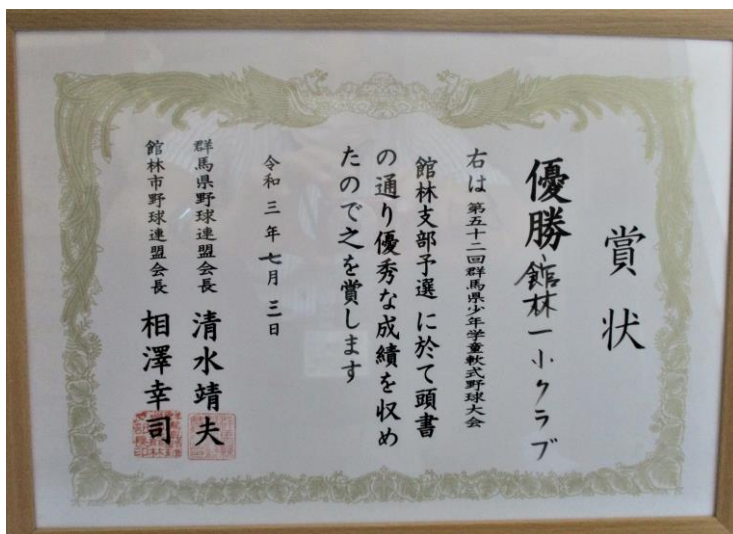 賞状
優勝 館林一小クラブ
右は 第五十二回群馬県少年学童軟式野球大会
館林支部予選 に於て頭書
の通り優秀な成績を収め
たので之を賞します
令和三年七月三日
群馬県野球連盟会長 清水靖夫
館林市野球連盟会長 相澤幸司